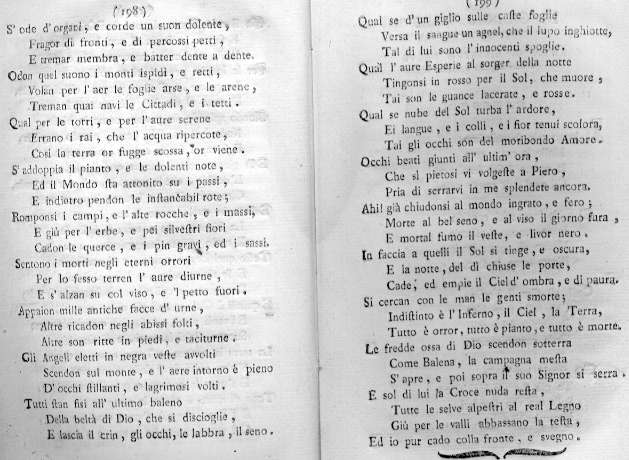 ( 198 )
S' ode d' organi, e corde un suon dolente,
Fragor di fronti, e di percossi petti,
E tremar membra, e batter dente a dente.
Odon quel suono i monti ispidi, e retti,
Volan per l' aer le foglie arse, e le arene,
Treman quai navi le Cittadi, e i tetti.
Qual per le torri, e per l' aure serene
Errano i rai, che l' acqua ripercote,
Così la terra or fugge scossa, or viene.
S' addoppia il pianto, e le dolenti note,
Ed il Mondo sta attonito su i passi,
E indietro pendon le instancabil rote;
Romponsi i campi, e l' alte rocche, e i massi,
E giù per l' erbe, e pei silvestri fiori
Cadon le querce, e i pin gravi, ed i sassi.
Sentono i morti negli eterni orrori
Per lo fesso terren l' aure diurne,
E s' alzan su col viso, e 'l petto fuori.
Appaion mille antiche facce d' urne,
Altre ricadon negli abissi folti,
Altre son ritte in piedi, e taciturne.
Gli Angeli eletti in negra veste avvolti
Scendon sul monte, e l' aere intorno è pieno
D' occhi stillanti, e lagrimosi volti.
Tutti stan fisi all' ultimo baleno
Della beltà di Dio, che si discioglie,
E lascia il crin, gli occhi, le labbra, il seno.
( 199 )
Qual se d' un giglio sulle caste foglie
Versa il sangue un agnel, che il lupo inghiotte,
Tal di lui sono l' innocenti spoglie.
Qual l' aure Esperie al sorger della notte
Tingonsi in rosso per il Sol, che muore,
Tai son le guance lacerate, e rosse.
Qual se nube del Sol turba l' ardore,
Ei langue, e i colli, e i fior tenui scolora,
Tai gli occhi son del moribondo Amore.
Occhi beati giunti all' ultim' ora,
Che sì pietosi vi volgeste a Piero,
Pria di serrarvi in me splendete ancora.
Ahi! già chiudonsi al mondo ingrato, e fero;
Morte al bel seno, e al viso il giorno fura,
E mortal fumo il veste, e livor nero.
In faccia a quelli il Sol si tinge, e oscura,
E la notte, del dì chiuse le porte,
Cade, ed empie il Ciel d' ombra, e di paura.
Si cercan con le man le genti smorte;
Indistinto è l' Inferno, il Ciel, la Terra,
Tutto è orror, tutto è pianto, e tutto è morte.
Le fredde ossa di Dio scendon sotterra
Come Balena, la campagna mesta
S' apre, e poi sopra il suo Signor si serra.
E sol di lui la Croce nuda resta,
Tutte le selve alpestri al real Legno
Giù per le valli abbassano la testa,
Ed io pur cado colla fronte, e svegno.